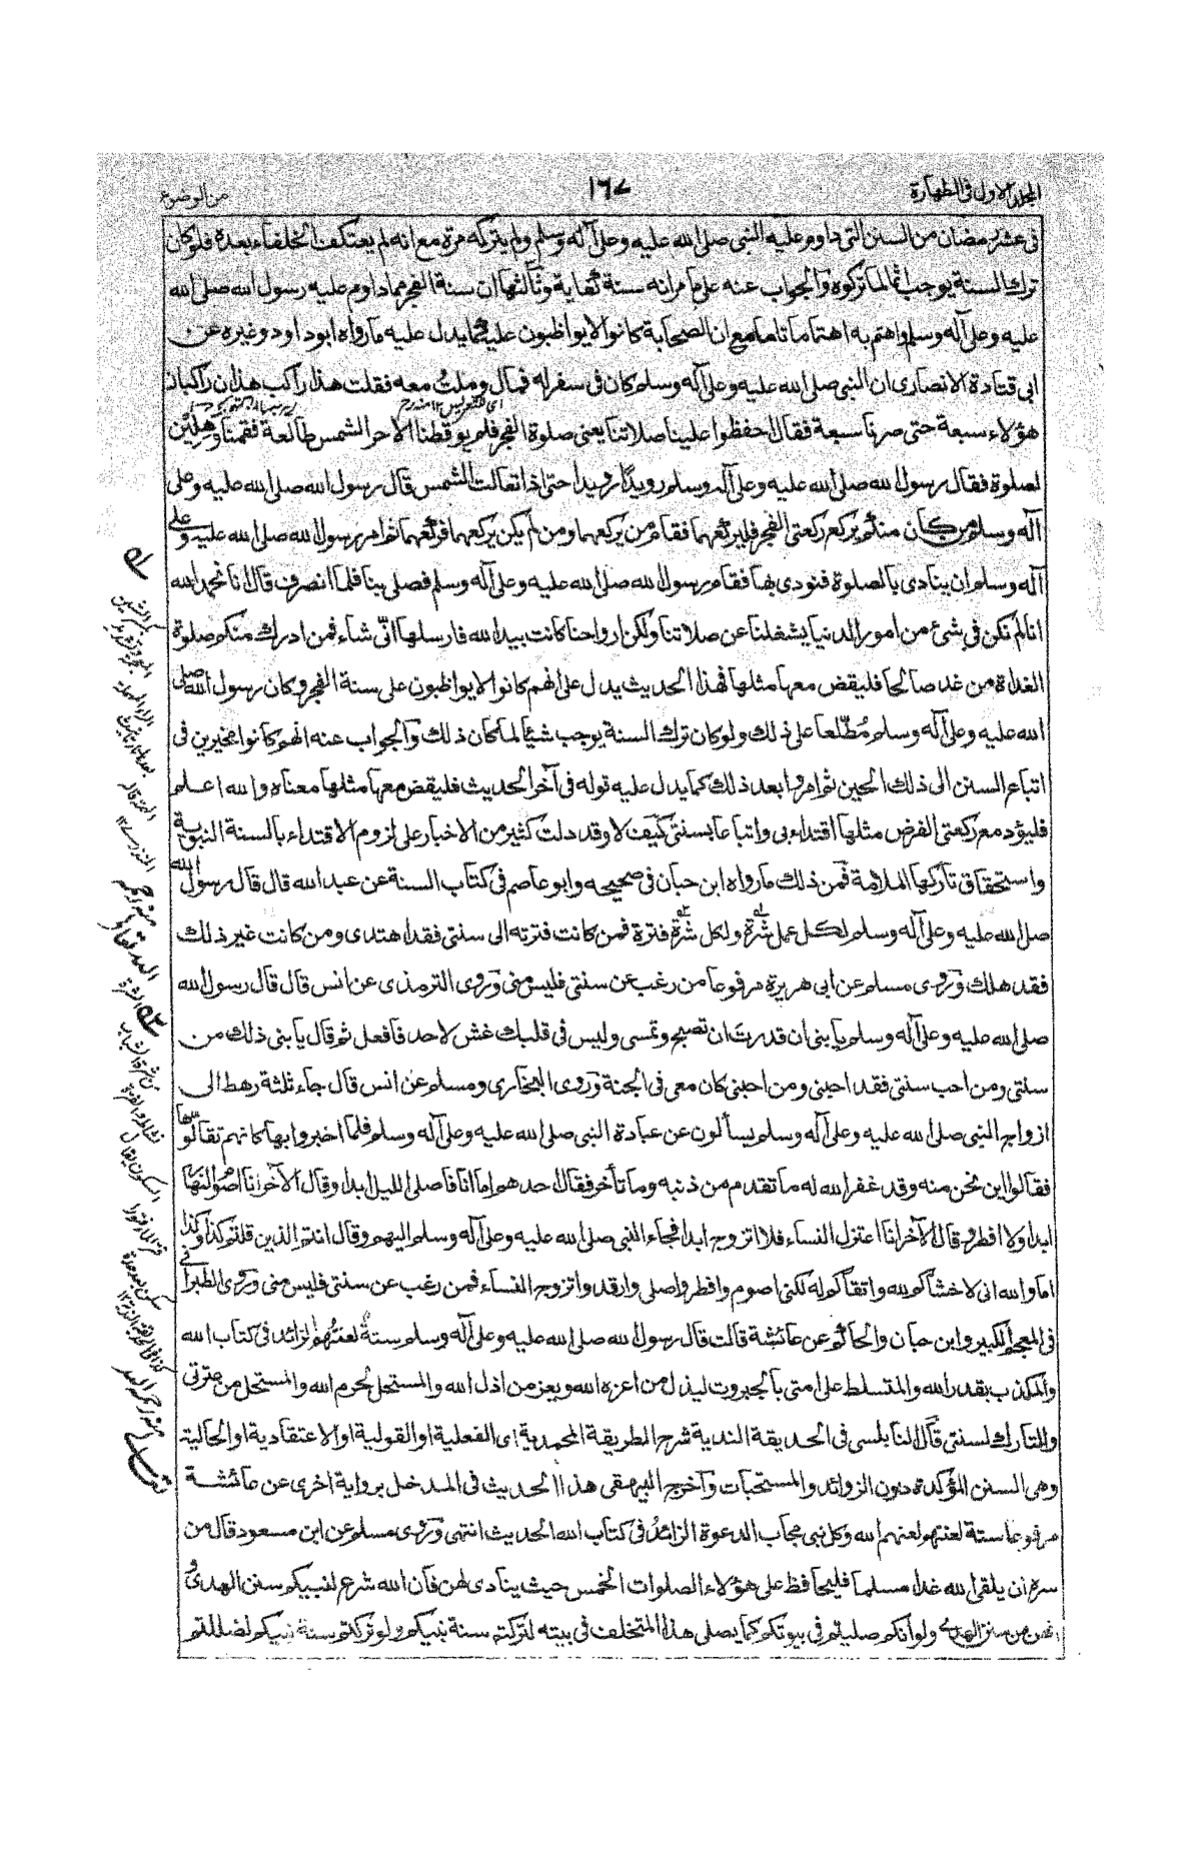 المجلد الاول فى الطهارة
١٦٧
من الوضوء
فى عشر رمضان من السنن التى داوم عليه النبى صلى الله عليه وعلى آله وسلم ولم يتركه مرة مع انه لم يعتكف الخلفاء بعده فلو كان
ترك السنة يوجب اثما لما تركوه والجواب عنه على ما مر انه سنة كفاية وثالثها ان سنة الفجر مما داوم عليه رسول الله صلى الله
عليه وعلى آله وسلم واهتم به اهتماما تاما مع ان الصحابة كانوا لا يواظبون عليه كما يدل عليه ما رواه ابو داود وغيره عن
ابى قتادة الانصارى ان النبى صلى الله عليه وعلى آله وسلم كان فى سفر له فمال وملت معه فقلت هذا راكب هذان راكبان
هؤلاء سبعة حتى صرنا سبعة فقال احفظوا علينا صلاتنا يعنى صلوة الفجر فلم يوقظنا الا حر الشمس طالعة فقمنا وهلين
لصلوة فقال رسول الله صلى الله عليه وعلى آله وسلم رويدا رويدا حتى اذا تعالت الشمس قال رسول الله صلى الله عليه وعلى
آله وسلم من كان منكم يركع ركعتى الفجر فليركعهما فقام من يركعهما ومن لم يكن يركعهما فركعهما ثم امر رسول الله صلى الله عليه وعلى
آله وسلم ان ينادى بالصلوة فنودى بها فقام رسول الله صلى الله عليه وعلى آله وسلم فصلى بنا فلما انصرف قال انا نحمد الله
انا لم نكن فى شئ من امور الدنيا يشغلنا عن صلاتنا ولكن ارواحنا كانت بيد الله فارسلها انّى شاء فمن ادرك منكم صلوة
الغداة من غد صالحا فليقض معها مثلها فهذا الحديث يدل على انهم كانوا لا يواظبون على سنة الفجر وكان رسول الله صلى
الله عليه وعلى آله وسلم مُطّلعا على ذلك ولو كان ترك السنة يوجب شيئا لما كان ذلك والجواب عنه انهم كانوا مخيرين فى
اتباع السنن الى ذلك الحين ثم امروا بعد ذلك كما يدل عليه قوله فى آخر الحديث فليقض معها مثلها معناه والله اعلم
فليؤد مع ركعتى الفرض مثلها اقتداء بى واتباعا بسنتى كيف لا وقد دلت كثير من الاخبار على لزوم الاقتداء بالسنة النبوية
واستحقاق تاركها الملامة فمن ذلك ما رواه ابن حبان فى صحيحه وابو عاصم فى كتاب السنة عن عبد الله قال قال رسول الله
صلى الله عليه وعلى آله وسلم لكل عمل شرة ولكل شرة فترة فمن كانت فترته الى سنتى فقد اهتدى ومن كانت غير ذلك
فقد هلك وروى مسلم عن ابى هريرة مرفوعا من رغب عن سنتى فليس منى وروى الترمذى عن انس قال قال رسول الله
صلى الله عليه وعلى آله وسلم يا بنى ان قدرت ان تصبح وتمسى وليس فى قلبك غش لاحد فافعل ثم قال يا بنى ذلك من
سنتى ومن احب سنتى فقد احبنى ومن احبنى كان معى فى الجنة وروى البخارى ومسلم عن انس قال جاء ثلثة رهط الى
ازواج النبى صلى الله عليه وعلى آله وسلم يسألون عن عبادة النبى صلى الله عليه وعلى آله وسلم فلما اخبروا بها كانهم تقالوها
فقالوا اين نحن منه وقد غفر الله له ما تقدم من ذنبه وما تأخر فقال احدهم اما انا فاصلى الليل ابدا وقال الآخر انا اصوم النهار
ابدا ولا افطر وقال الآخر انا اعتزل النساء فلا اتزوج ابدا فجاء النبى صلى الله عليه وعلى آله وسلم اليهم وقال انتم الذين قلتم كذا وكذا
اما والله انى لاخشاكم لله واتقاكم له لكنى اصوم وافطر واصلى وارقد واتزوج النساء فمن رغب عن سنتى فليس منى وروى الطبرانى
فى المعجم الكبير وابن حبان والحاكم عن عائشة قالت قال رسول الله صلى الله عليه وعلى آله وسلم ستة لعنتهم الزائد فى كتاب الله
والمكذب بقدر الله والمتسلط على امتى بالجبروت ليذل من اعزه الله ويعز من اذل الله والمستحل لحرم الله والمستحل من عترتى
والتارك لسنتى قال النابلسى فى الحديقة الندية شرح الطريقة المحمدية اى الفعلية او القولية او الاعتقادية او الحالية
وهى السنن المؤكدة دون الزوائد والمستحبات وآخرج البيهقى هذا الحديث فى المدخل برواية اخرى عن عائشة
مرفوعا ستة لعنتهم لعنهم الله وكل نبى مجاب الدعوة الزائد فى كتاب الله الحديث انتهى وروى مسلم عن ابن مسعود قال من
سره ان يلقى الله غدا مسلما فليحافظ على هؤلاء الصلوات الخمس حيث ينادى لهن فان الله شرع لنبيكم سنن الهدى و
هن من سنن الهدى ولو انكم صليتم فى بيوتكم كما يصلى هذا المتخلف فى بيته لتركتم سنة نبيكم ولو تركتم سنة نبيكم لضللتم